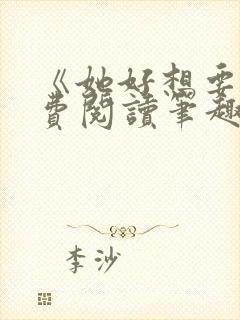 《她好想要
費閱讀筆趣
李沙